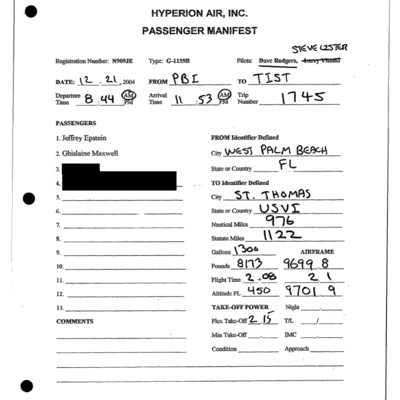 HYPERION AIR, INC.
PASSENGER MANIFEST
STEVE LISTER
Registration Number: N909JE Type: G-1159B Pilots: Dave Rodgers,
DATE: 12.21.2004 FROM PBI TO TIST
Departure Time 8 44 AM PM Arrival Time 11 53 AM PM Trip Number 1745
PASSENGERS
1. Jeffrey Epstein FROM Identifier Defined
2. Ghislaine Maxwell City WEST PALM BEACH
3. State or Country FL
4. TO Identifier Defined
5. City ST. THOMAS
6. State or Country USVI
7. Nautical Miles 976
8. Statute Miles 1122
9. Gallons 1300 AIRFRAME
10. Pounds 8173 9699 8
11. Flight Time 2.08 2 1
12. Altitude FL 450 9701 9
13. TAKE-OFF POWER Night
COMMENTS Flex Take-Off 2 15 T/L /
Min Take-Off IMC
Condition Approach